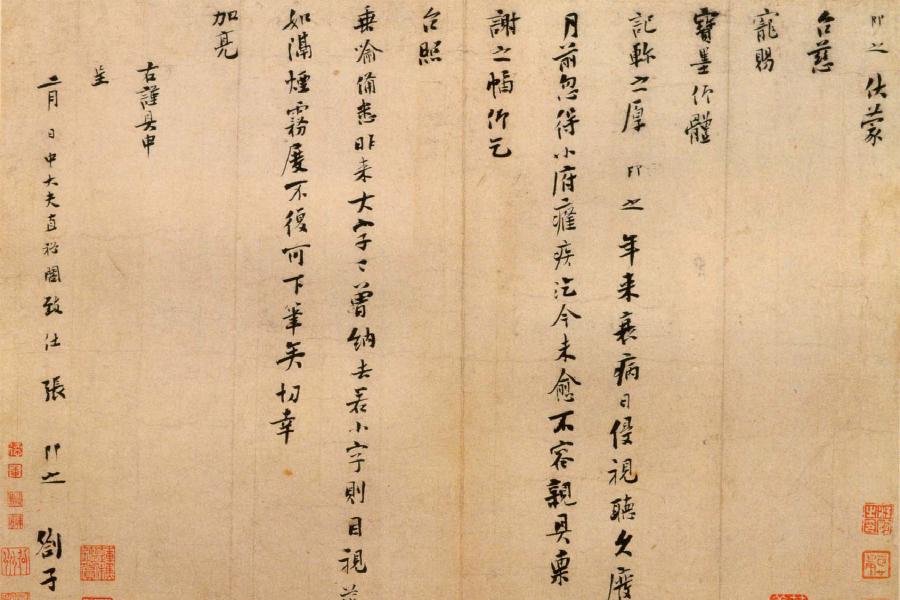 即之 伏蒙
台慈
寵賜
寶墨仰體
記軫之厚 即之 年来衰病日侵視聽久廢
月前忽得小府癃疾迄今未愈不容親具稟
謝之幅仰乞
台照
垂喻備悉昨来大字曽納去若小字則目視
如滿煙霧不復可下筆矣切幸
加亮
右謹具申
呈
二月 日中大夫直祕閣致仕張 即之 劄子